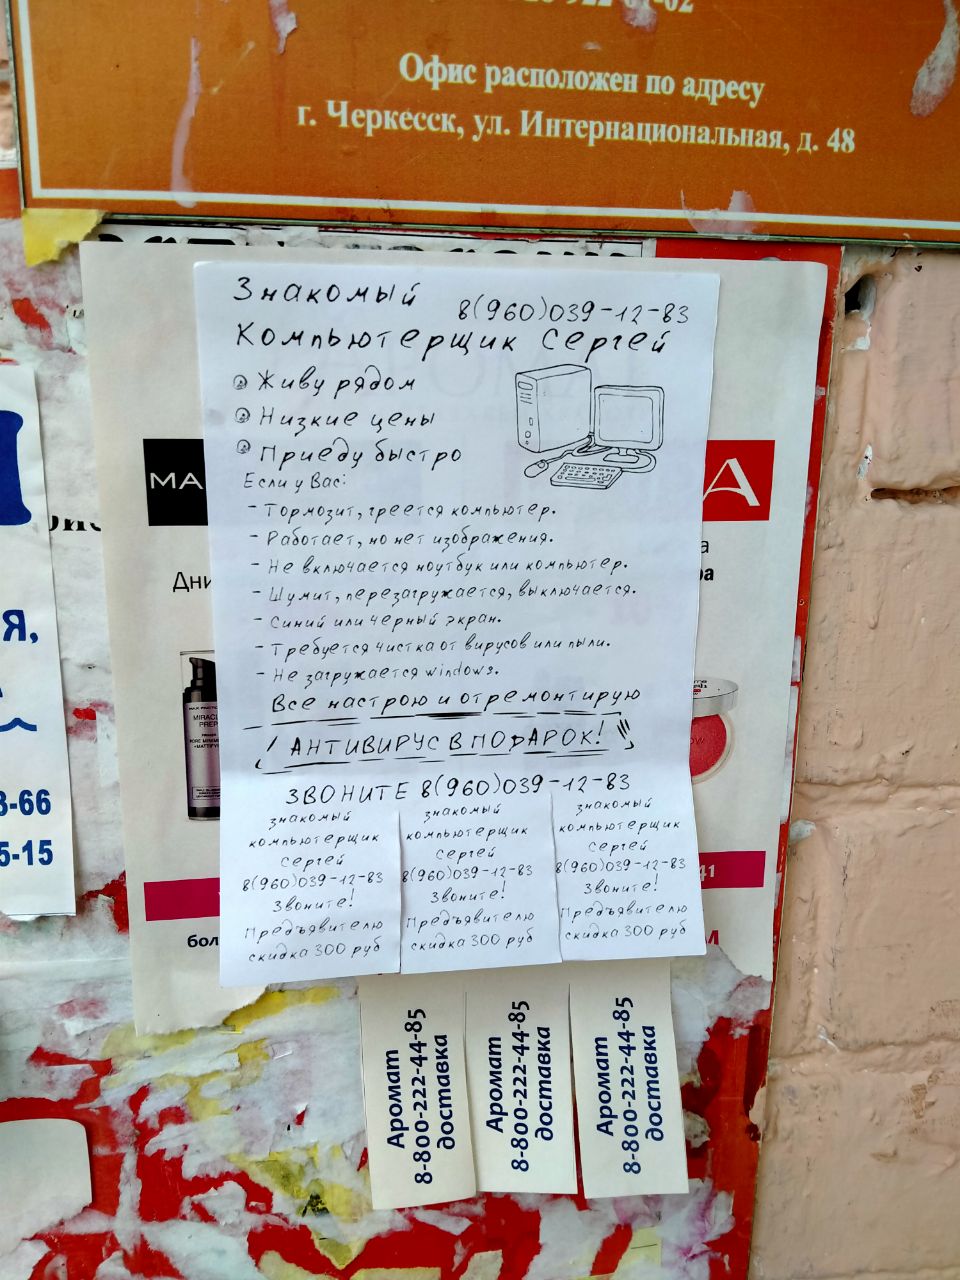 Офис расположен по адресу
г. Черкесск, ул. Интернациональная, д. 48
Знакомый
8(960)039-12-83
Компьютерщик Сергей
Живу рядом
Низкие цены
Приеду быстро
Если у Вас:
- Тормозит, греется компьютер.
- Работает, но нет изображения.
- Не включается ноутбук или компьютер.
- Шумит, перезагружается, выключается.
- Синий или черный экран.
- Требуется чистка от вирусов или пыли.
- Не загружается windows.
Все настрою и отремонтирую
АНТИВИРУС В ПОДАРОК!
ЗВОНИТЕ 8(960)039-12-83
знакомый
компьютерщик
Сергей
8(960)039-12-83
Звоните!
Предъявителю
скидка 300 руб
знакомый
компьютерщик
Сергей
8(960)039-12-83
Звоните!
Предъявителю
скидка 300 руб
знакомый
компьютерщик
Сергей
8(960)039-12-83
Звоните!
Предъявителю
скидка 300 руб
MA
A
Дни
MIRACLE
PREP
бол
41
Я,
3-66
5-15
Аромат
8-800-222-44-85
доставка
Аромат
8-800-222-44-85
доставка
Аромат
8-800-222-44-85
доставка